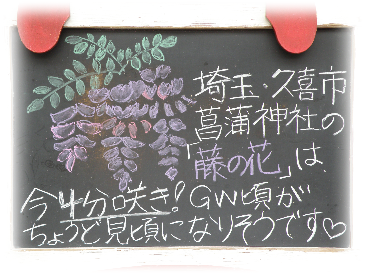 埼玉・久喜市
菖蒲神社の
「藤の花」は、
今4分咲き!GW頃が
ちょうど見頃になりそうです♡